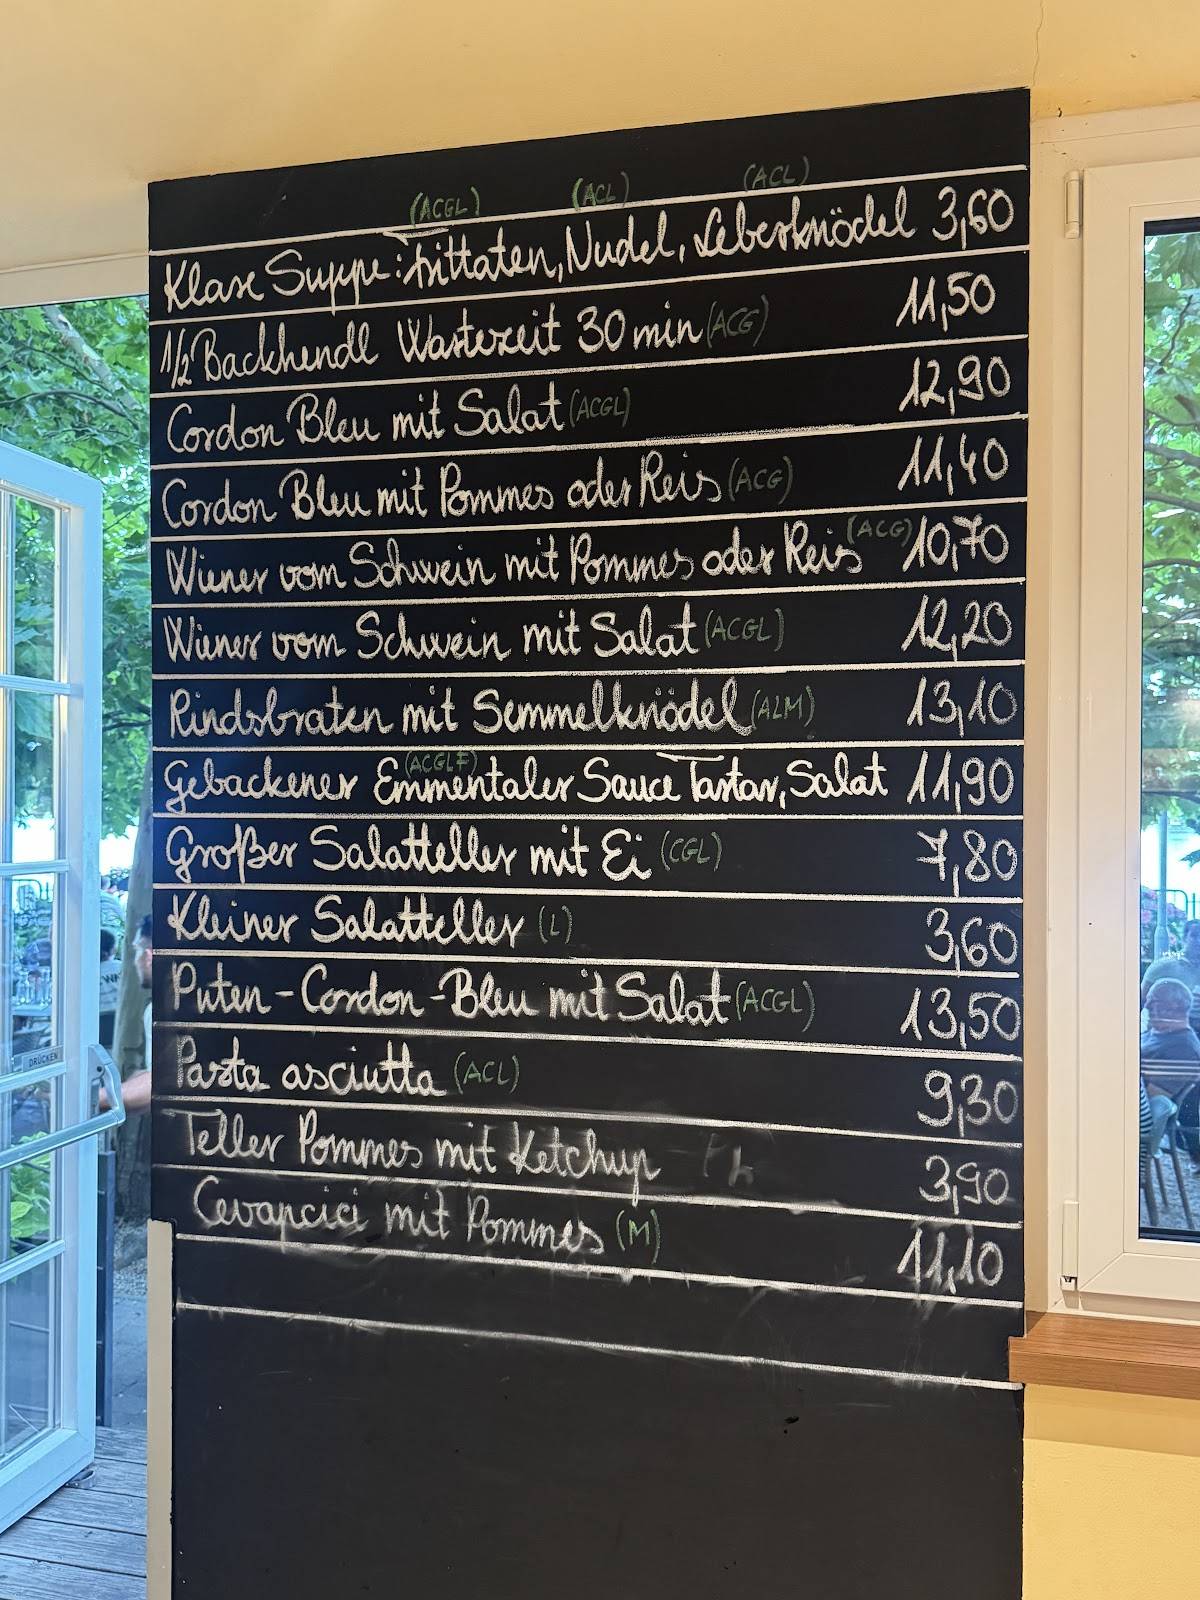 (ACGL) (ACL) (ACL)
Klare Suppe: Frittaten, Nudel, Leberknödel 3,60
1/2 Backhendl Wartezeit 30 min (ACG) 11,50
Cordon Bleu mit Salat (ACGL) 12,90
Cordon Bleu mit Pommes oder Reis (ACG) 11,40
Wiener vom Schwein mit Pommes oder Reis (ACG) 10,70
Wiener vom Schwein mit Salat (ACGL) 12,20
Rindsbraten mit Semmelknödel (ALM) 13,10
(ACGLF)
Gebackener Emmentaler Sauce Tartar, Salat 11,90
Großer Salatteller mit Ei (CGL) 7,80
Kleiner Salatteller (L) 3,60
Puten-Cordon-Bleu mit Salat (ACGL) 13,50
Pasta asciutta (ACL) 9,30
Teller Pommes mit Ketchup 3,90
Cevapcici mit Pommes (M) 11,10
DRÜCKEN